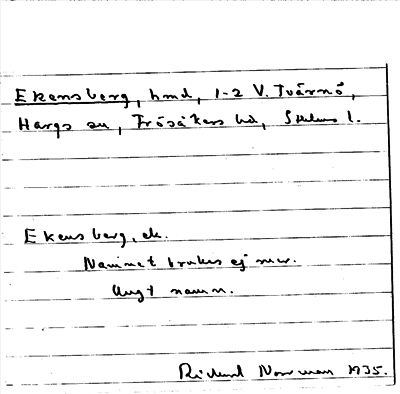 Ekensberg, hmd, 1-2 V. Tvärnö,
Hargs sn, Frösåkers hd, Sthlms l.
Ekensberg, ek.
Namnet brukas ej mer.
Ungt namn.
Rickard Norrman 1935.